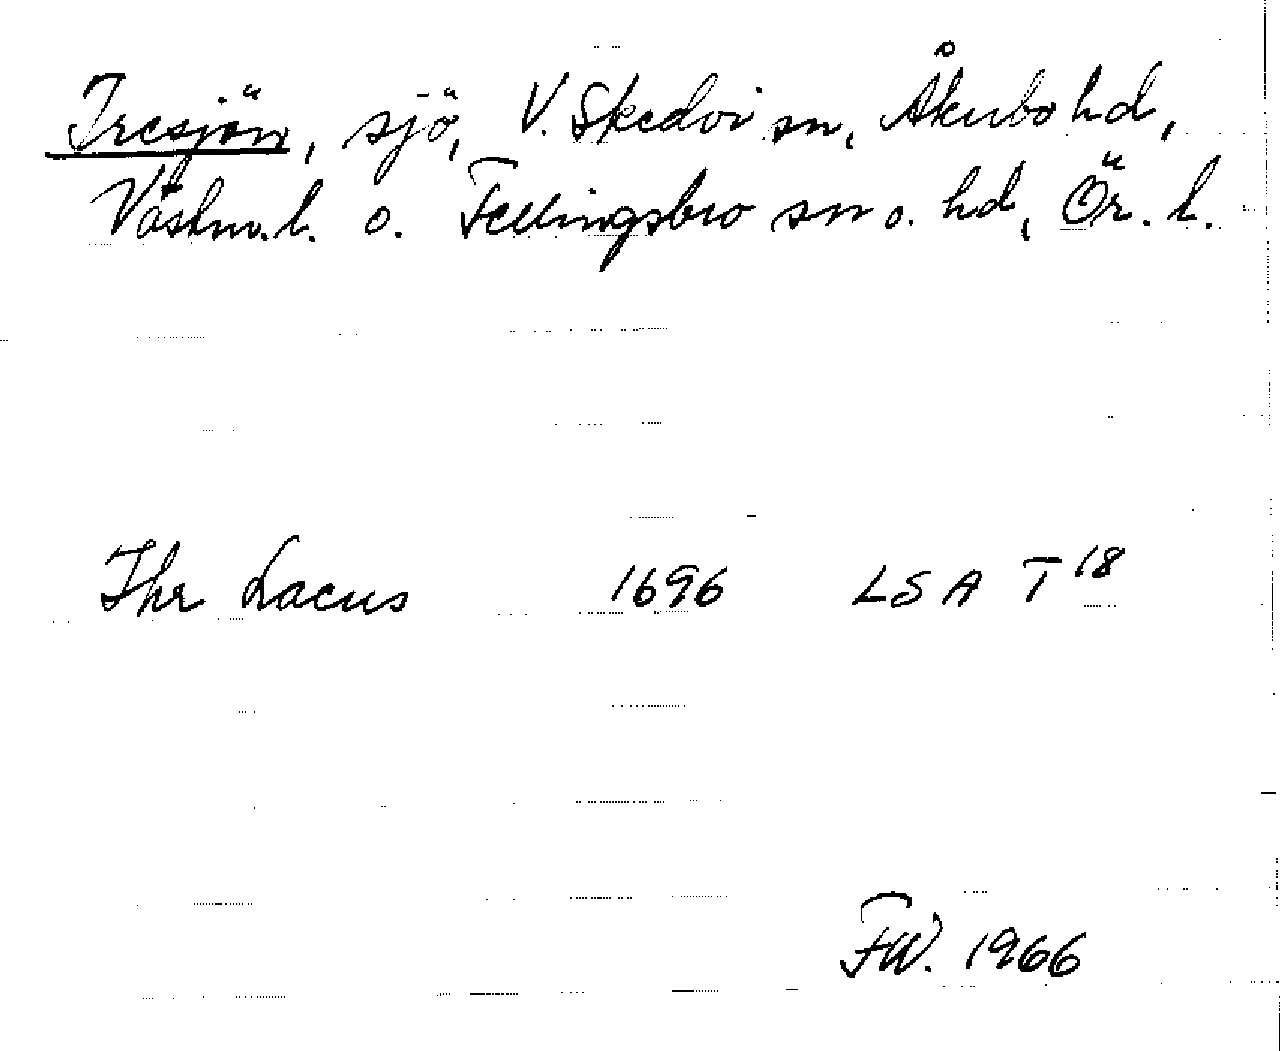 Iresjön, sjö, V. Skedvi sn, Åkerbo hd,
Västm. l. o. Fellingsbro sn o. hd, Ör. l.
Ihr Lacus 1696 LSA T 18
FW. 1966